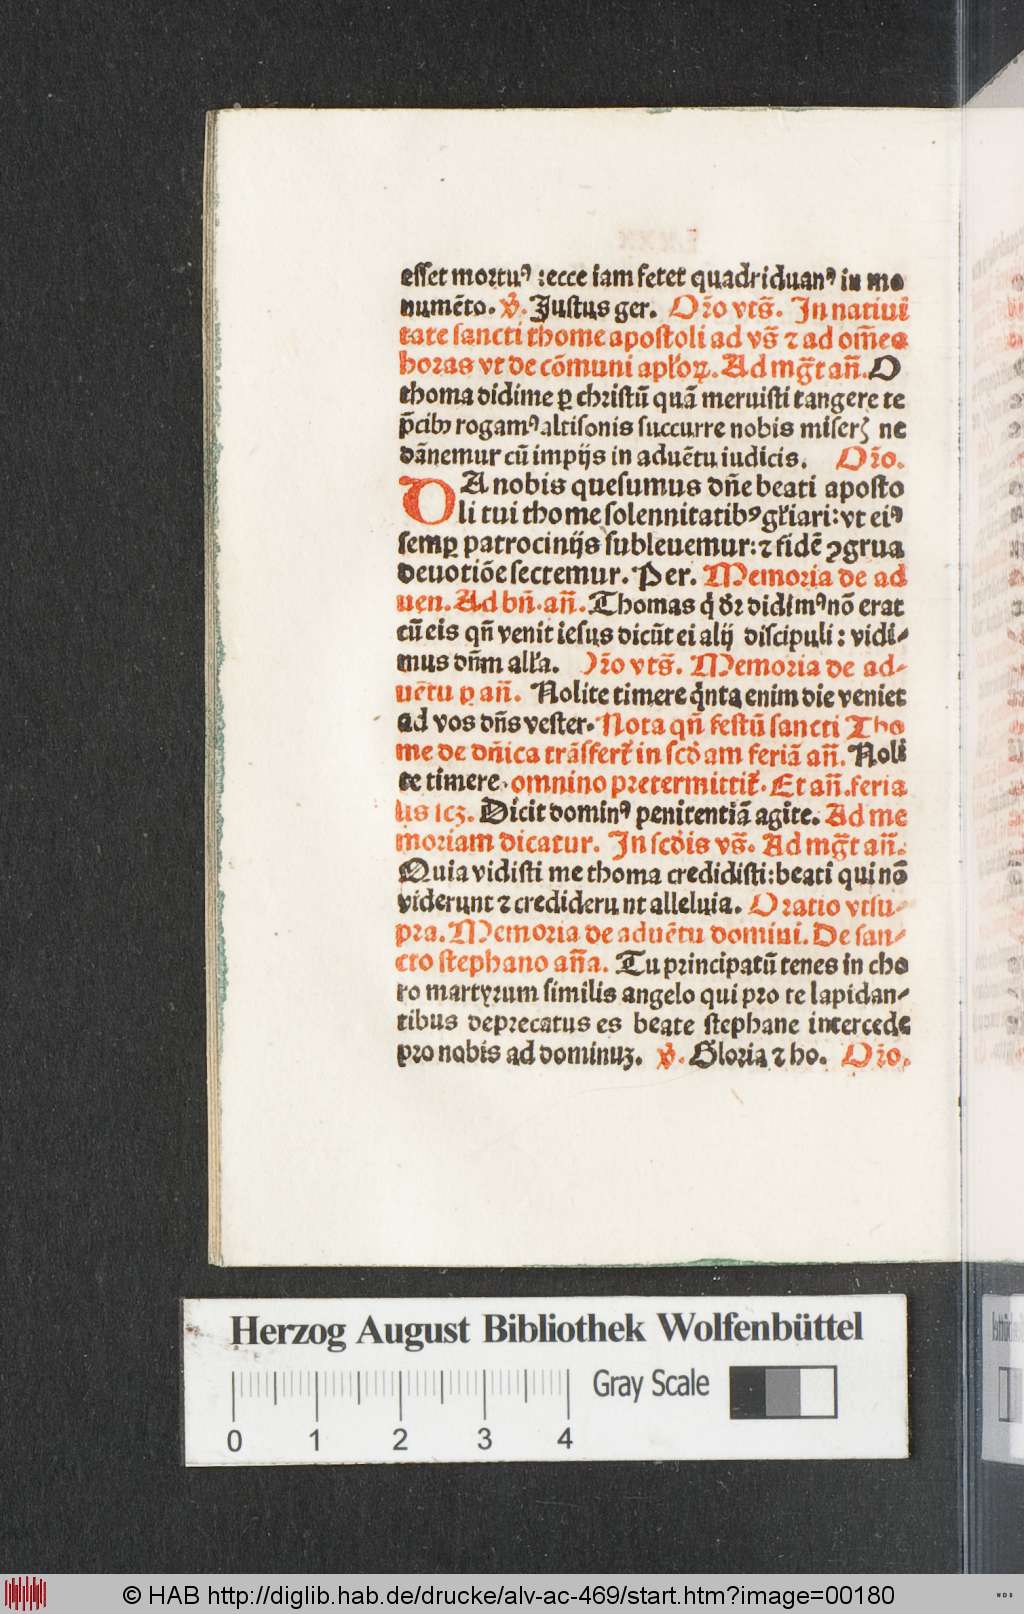 esset mortuꝰ :ecce iam fetet quadriduanꝰ in mo
numēto. ℣. Justus ger. Oro̅ vts̄. In natiui
tate sancti thome apostoli ad vs̄ ⁊ ad om̄es
horas vt de cōmuni apl'oꝝ. Ad mḡt an̄. O
thoma didime ꝑ christū quā meruisti tangere te
p̄cibꝰ rogamꝰ altisonis succurre nobis miserꝫ ne
dānemur cū impijs in aduētu iudicis. Oro̅.
DA nobis quesumus dn̄e beati aposto
li tui thome solennitatibꝰ gl'iari: vt eiꝰ
semꝑ patrocinijs subleuemur: ⁊ fidē ꝯgrua
deuotiōe sectemur. Per. Memoria de ad
uen. Ad bn̄. an̄. Thomas q̇ dr didimꝰ nō erat
cū eis qn̄ venit iesus dicūt ei alij discipuli: vidi⸗
mus dn̄m all'a. Oro̅ vts̄. Memoria de ad⸗
uētu ꝑ an̄. Nolite timere q̇nta enim die veniet
ad vos dn̄s vester. Nota qn̄ festū sancti Tho
me de dn̄ica trāsfert' in scd̄am feriā an̄. Noli
te timere. omnino pretermittit'. Et an̄. feria
lis scꝫ. Dicit dominꝰ penitentiā agite. Ad me
moriam dicatur. In scd̄is vs̄. Ad mḡt an̄.
Quia vidisti me thoma credidisti: beati qui nō
viderunt ⁊ crediderunt alleluia. Oratio vtsu⸗
pra. Memoria de aduētu domini. De san⸗
cto stephano an̄a. Tu principatū tenes in cho
ro martyrum similis angelo qui pro te lapidan⸗
tibus deprecatus es beate stephane intercede
pro nobis ad dominuꝫ. ℣. Gloria ⁊ ho. Oro̅.
Herzog August Bibliothek Wolfenbüttel
Gray Scale
0 1 2 3 4
© HAB http://diglib.hab.de/drucke/alv-ac-469/start.htm?image=00180